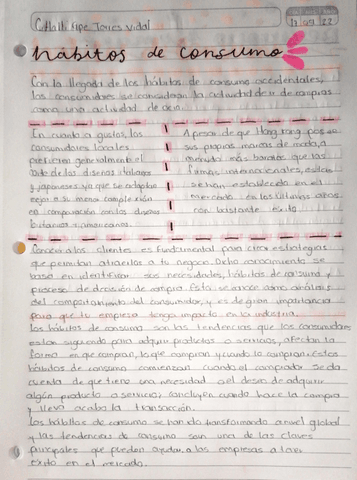 Torres Vidal
17 09 22
hábitos de consumo
Con la llegada de los hábitos de consumo occidentales,
los consumidores consideran la actividad de ir de compras
como una actividad de ocio.
En cuanto a gustos, los
consumidores locales
prefieren generalmente el
corte de los diseños italianos
y japoneses ya que se adaptan
mejor a su menor complexión
en comparación con los diseños
británicos y americanos.
A pesar de que Hong Kong posee
sus propias marcas de moda, a
menudo más baratas que las
firmas internacionales, estas
se han establecido en el
mercado en los últimos años
con bastante éxito
Conocer a los clientes es fundamental para crear estrategias
que permitan atraerlos a tu negocio. Dicho conocimiento se
basa en identificar sus necesidades, hábitos de consumo y
proceso de decisión de compra. Esto se conoce como análisis
del comportamiento del consumidor, y es de gran importancia
para que tu empresa tenga impacto en la industria.
Los hábitos de consumo son las tendencias que los consumidores
están siguiendo para adquirir productos o servicios, afectan la
forma en que compran, lo que compran y cuando lo compran. Estos
hábitos de consumo comienzan cuando el comprador se da
cuenta de que tiene una necesidad o el deseo de adquirir
algún producto o servicio; concluyen cuando hace la compra
y lleva a cabo la transacción.
Los hábitos de consumo se han do transformando a nivel global
y las tendencias de consumo son una de las claves
principales que pueden ayudar a las empresas a tener
éxito en el mercado.